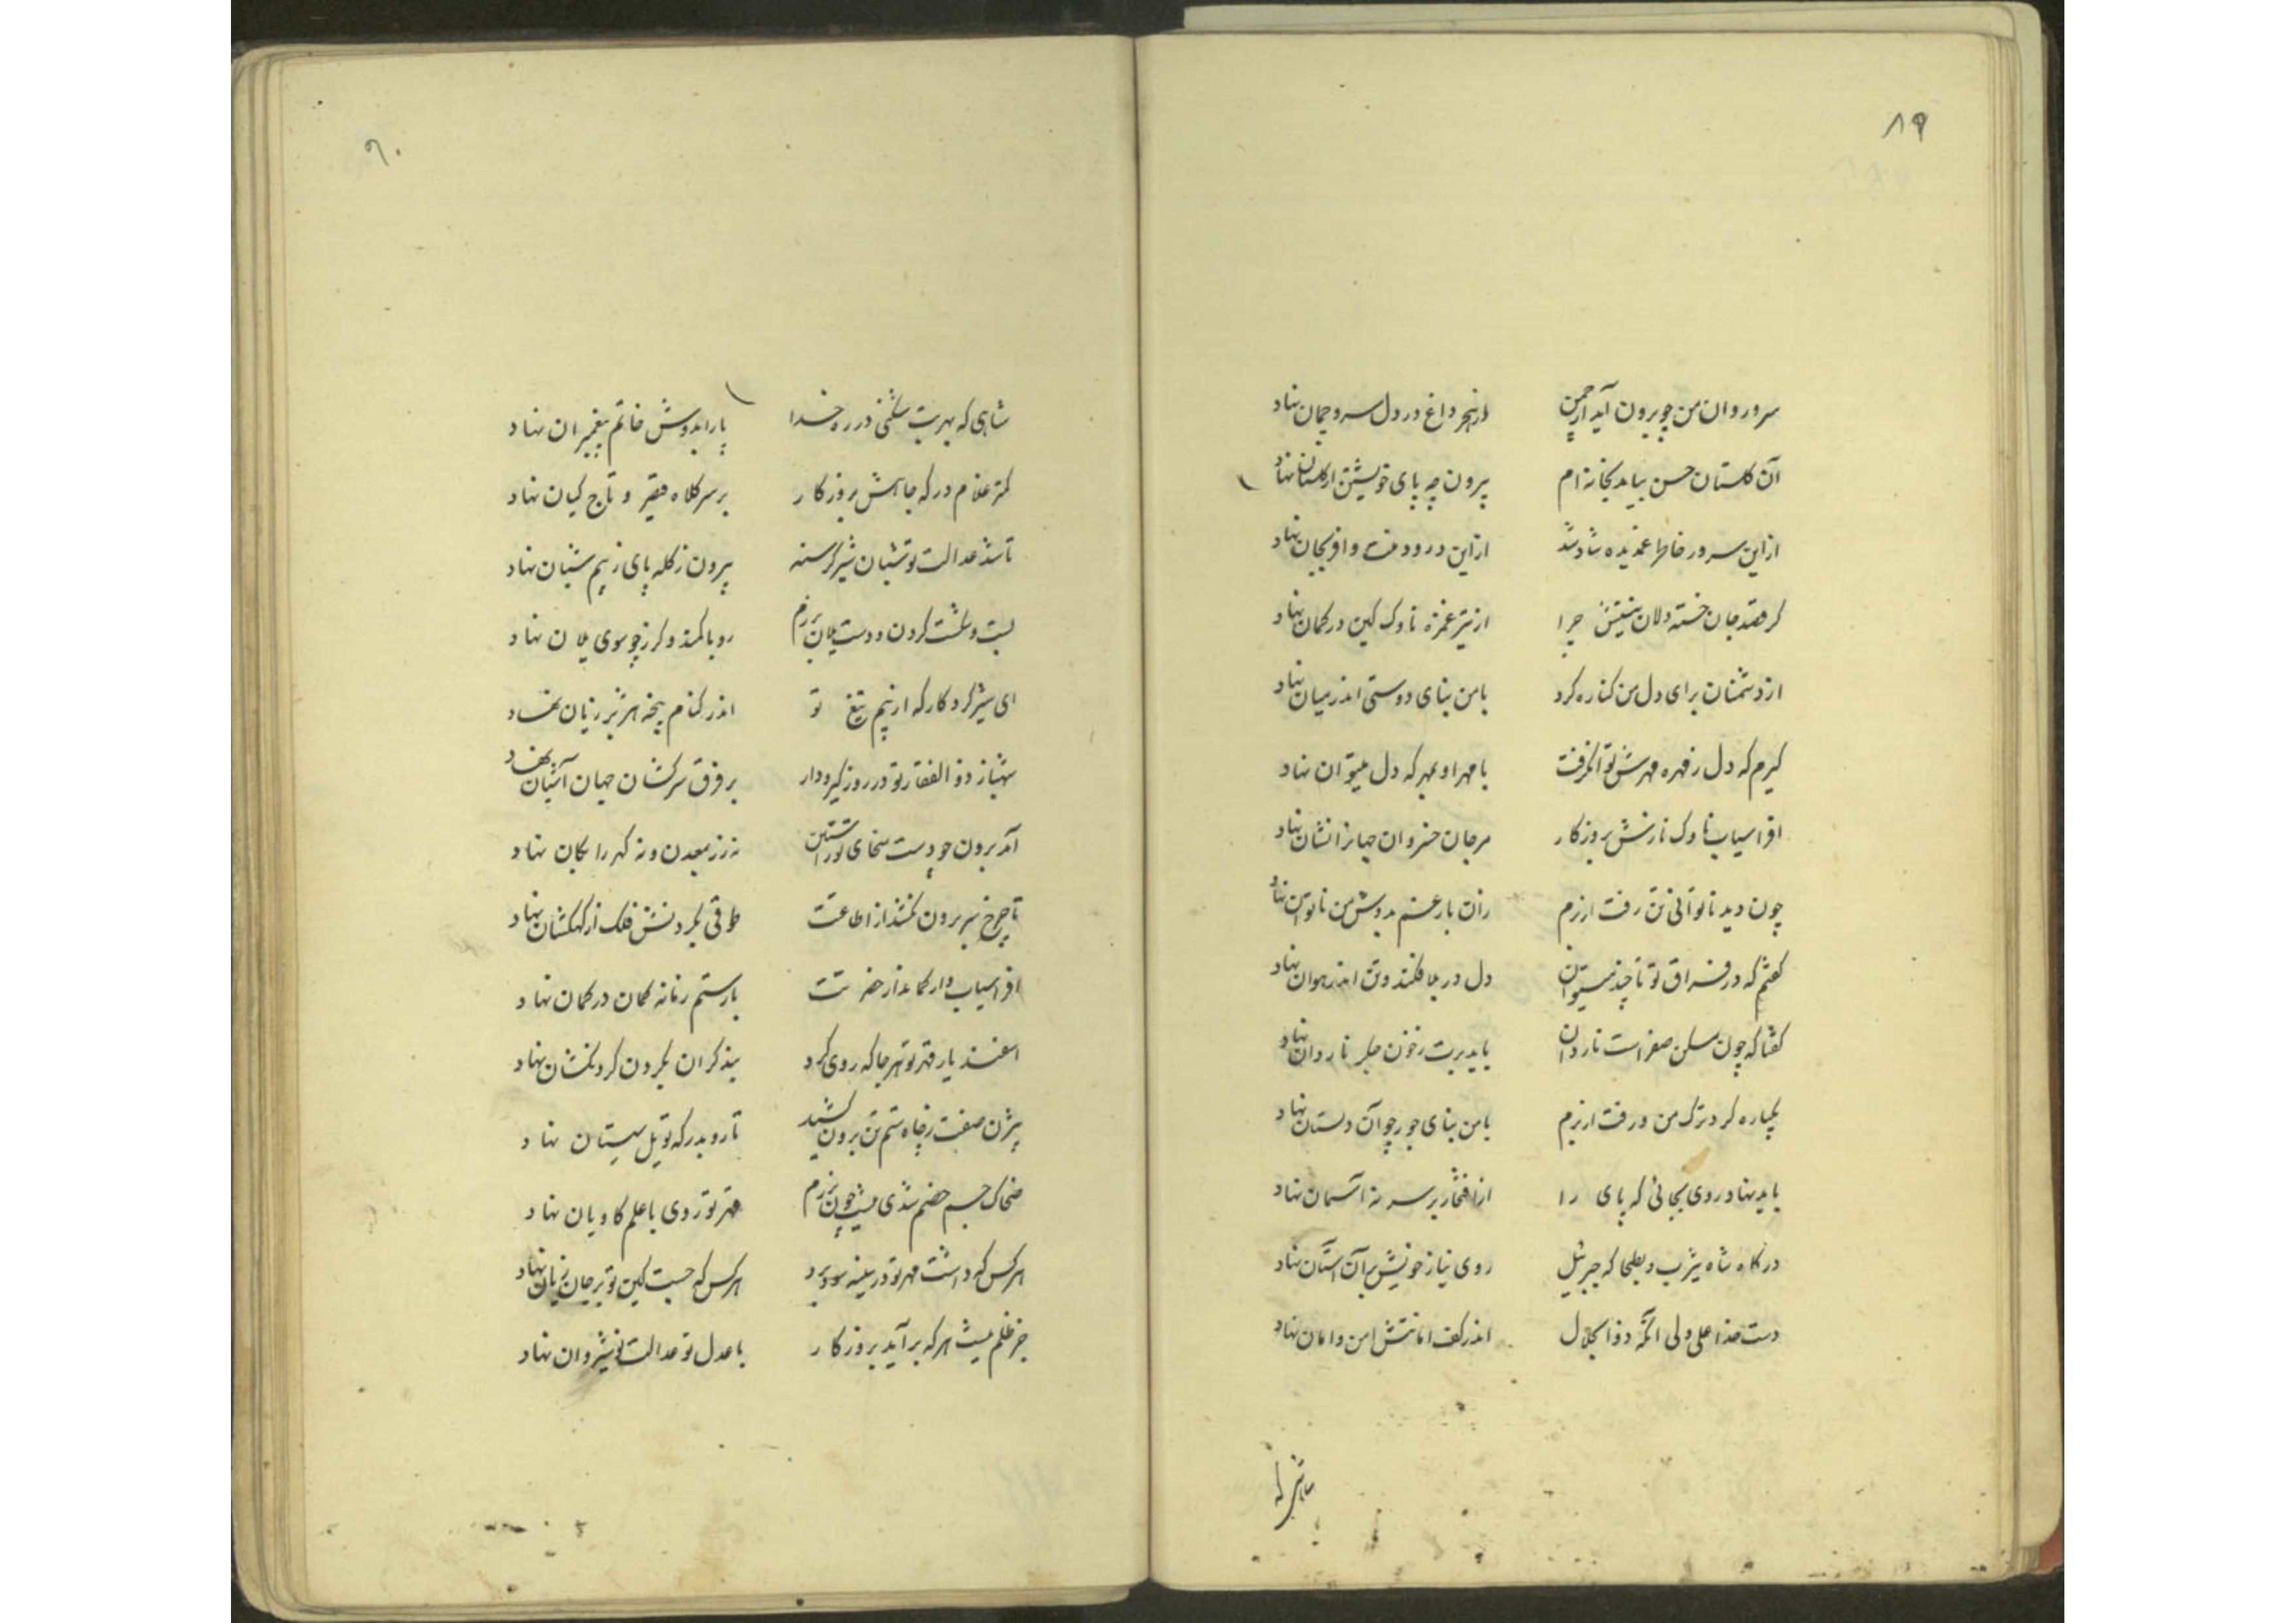 ۸۹
سرو روان من چو برون آید از چمن از هجر داغ در دل سرو چمان نهاد
آن گلستان حسن بیامد بخانه ام بیرون چه پای خویشتن از گلستان نهاد
از این سرور خاطر غمدیده شاد شد از این درود منت وافر بجان نهاد
گر قصد جان خسته دلان نیستش چرا از تیر غمزه ناوک کین در کمان نهاد
از دشمنان برای دل من کناره کرد با من بنای دوستی اندر میان نهاد
گیرم که دل ز قهر مهرش تو ان گرفت با مهر او بهر که دل میتوان نهاد
افراسیاب ناوک نازش بروزگار مرجان خسروان جهانرا نشان نهاد
چون دید ناتوانی تن رفت از برم زان بار غم بدوش من ناتوان نهاد
گفتم که در فراق تو تا چند میتوان دل در بلا فکند و تن اندر هوان نهاد
گفتا که چون مسکن صفراست ناردان باید برت ز خون جگر ناردان نهاد
یکباره کرد ترک من و رفت از برم با من بنای جور چو آن دلستان نهاد
باید نهاد روی بجائی که پای را از افتخار بر سر نه آسمان نهاد
درگاه شاه یثرب و بطحا که جبرئیل روی نیاز خویش بر آن آستان نهاد
دست خدا علی ولی آنکه ذوالجلال اندر کف امانتش امن و امان نهاد
شاهی که
۹۰
شاهی که بهر بت شکنی در ره خدا پا را بدوش خاتم پیغمبران نهاد
کمتر غلام درگه جاهش بروزگار بر سر کلاه قیصر و تاج کیان نهاد
تا شد عدالت تو شبان شیر گرسنه بیرون ز گله پای ز بیم شبان نهاد
بست و شکست گردن و دست یلان برزم رو با کمند و گرز چو سوی یلان نهاد
ای شیر کردگار که از بیم تیغ تو اندر کنام پنجه هژبر ژیان نهاد
شهباز ذوالفقار تو در روز گیر و دار بر فرق سرکشان جهان آشیان نهاد
آمد برون چو دست سخای تو ز آستین نه زر بمعدن و نه گهر را بکان نهاد
تا چرخ سر برون نکشد از اطاعتت طوقی بگردنش فلک از کهکشان نهاد
افراسیاب وار کماندار حضرتت با رستم زمانه کمان در کمان نهاد
اسفندیار قهر تو هر جا که روی کرد بند گران بگردن گردنکشان نهاد
بیژن صفت ز چاه ستم تن برون کشید تا رو بدرگه تو یل سیستان نهاد
ضحاک جسم خصم شدی پیش چون برزم قهر تو روی با علم کاویان نهاد
هر کس که داشت مهر تو در سینه سود برد هر کس که جست کین تو بر جان زیان نهاد
جز ظلم نیست هر که بر آید بروزگار با عدل تو عدالت نوشیروان نهاد